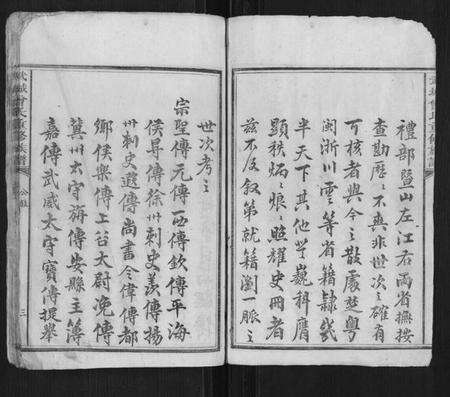 禮部暨山左江右兩省撫按
查勘歷〻不爽非世次之確有
可核者與今之散處楚粵
閩浙川雲〻等省籍隸幾
半天下其他掌巍科膺
顯秩炳〻烺〻照耀史冊者
茲不及叙第就籍瀏一脈之
世次考之
宗聖傳元傳西傳欽傳平海
侯尋傳徐州刺史羨傳揚
州刺史遐傳尚書令偉傳都
鄉侯樂傳上谷太尉浼傳
冀州太守旃傳安縣主簿
嘉傳武威太守寶傳提舉
武城曾氏重修族譜
三